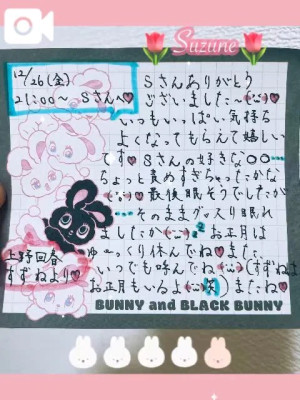 Suzune
12/26(金)
21:00〜 Sさんへ♥
Sさんありがとう
ございました〜
いつもいっぱい気持ち
よくなってもらえて嬉しい
です♥Sさんの好きな○○…
ちょっと責めすぎちゃったかな
最後眠そうでしたが
…そのままグッスリ眠れ
ましたか お正月は
ゆ〜っくり休んでね♥また
いつでも呼んでね (すずねは
お正月もいるよ 笑)またね♥
上野回春
すずねより♥
BUNNY and BLACK BUNNY